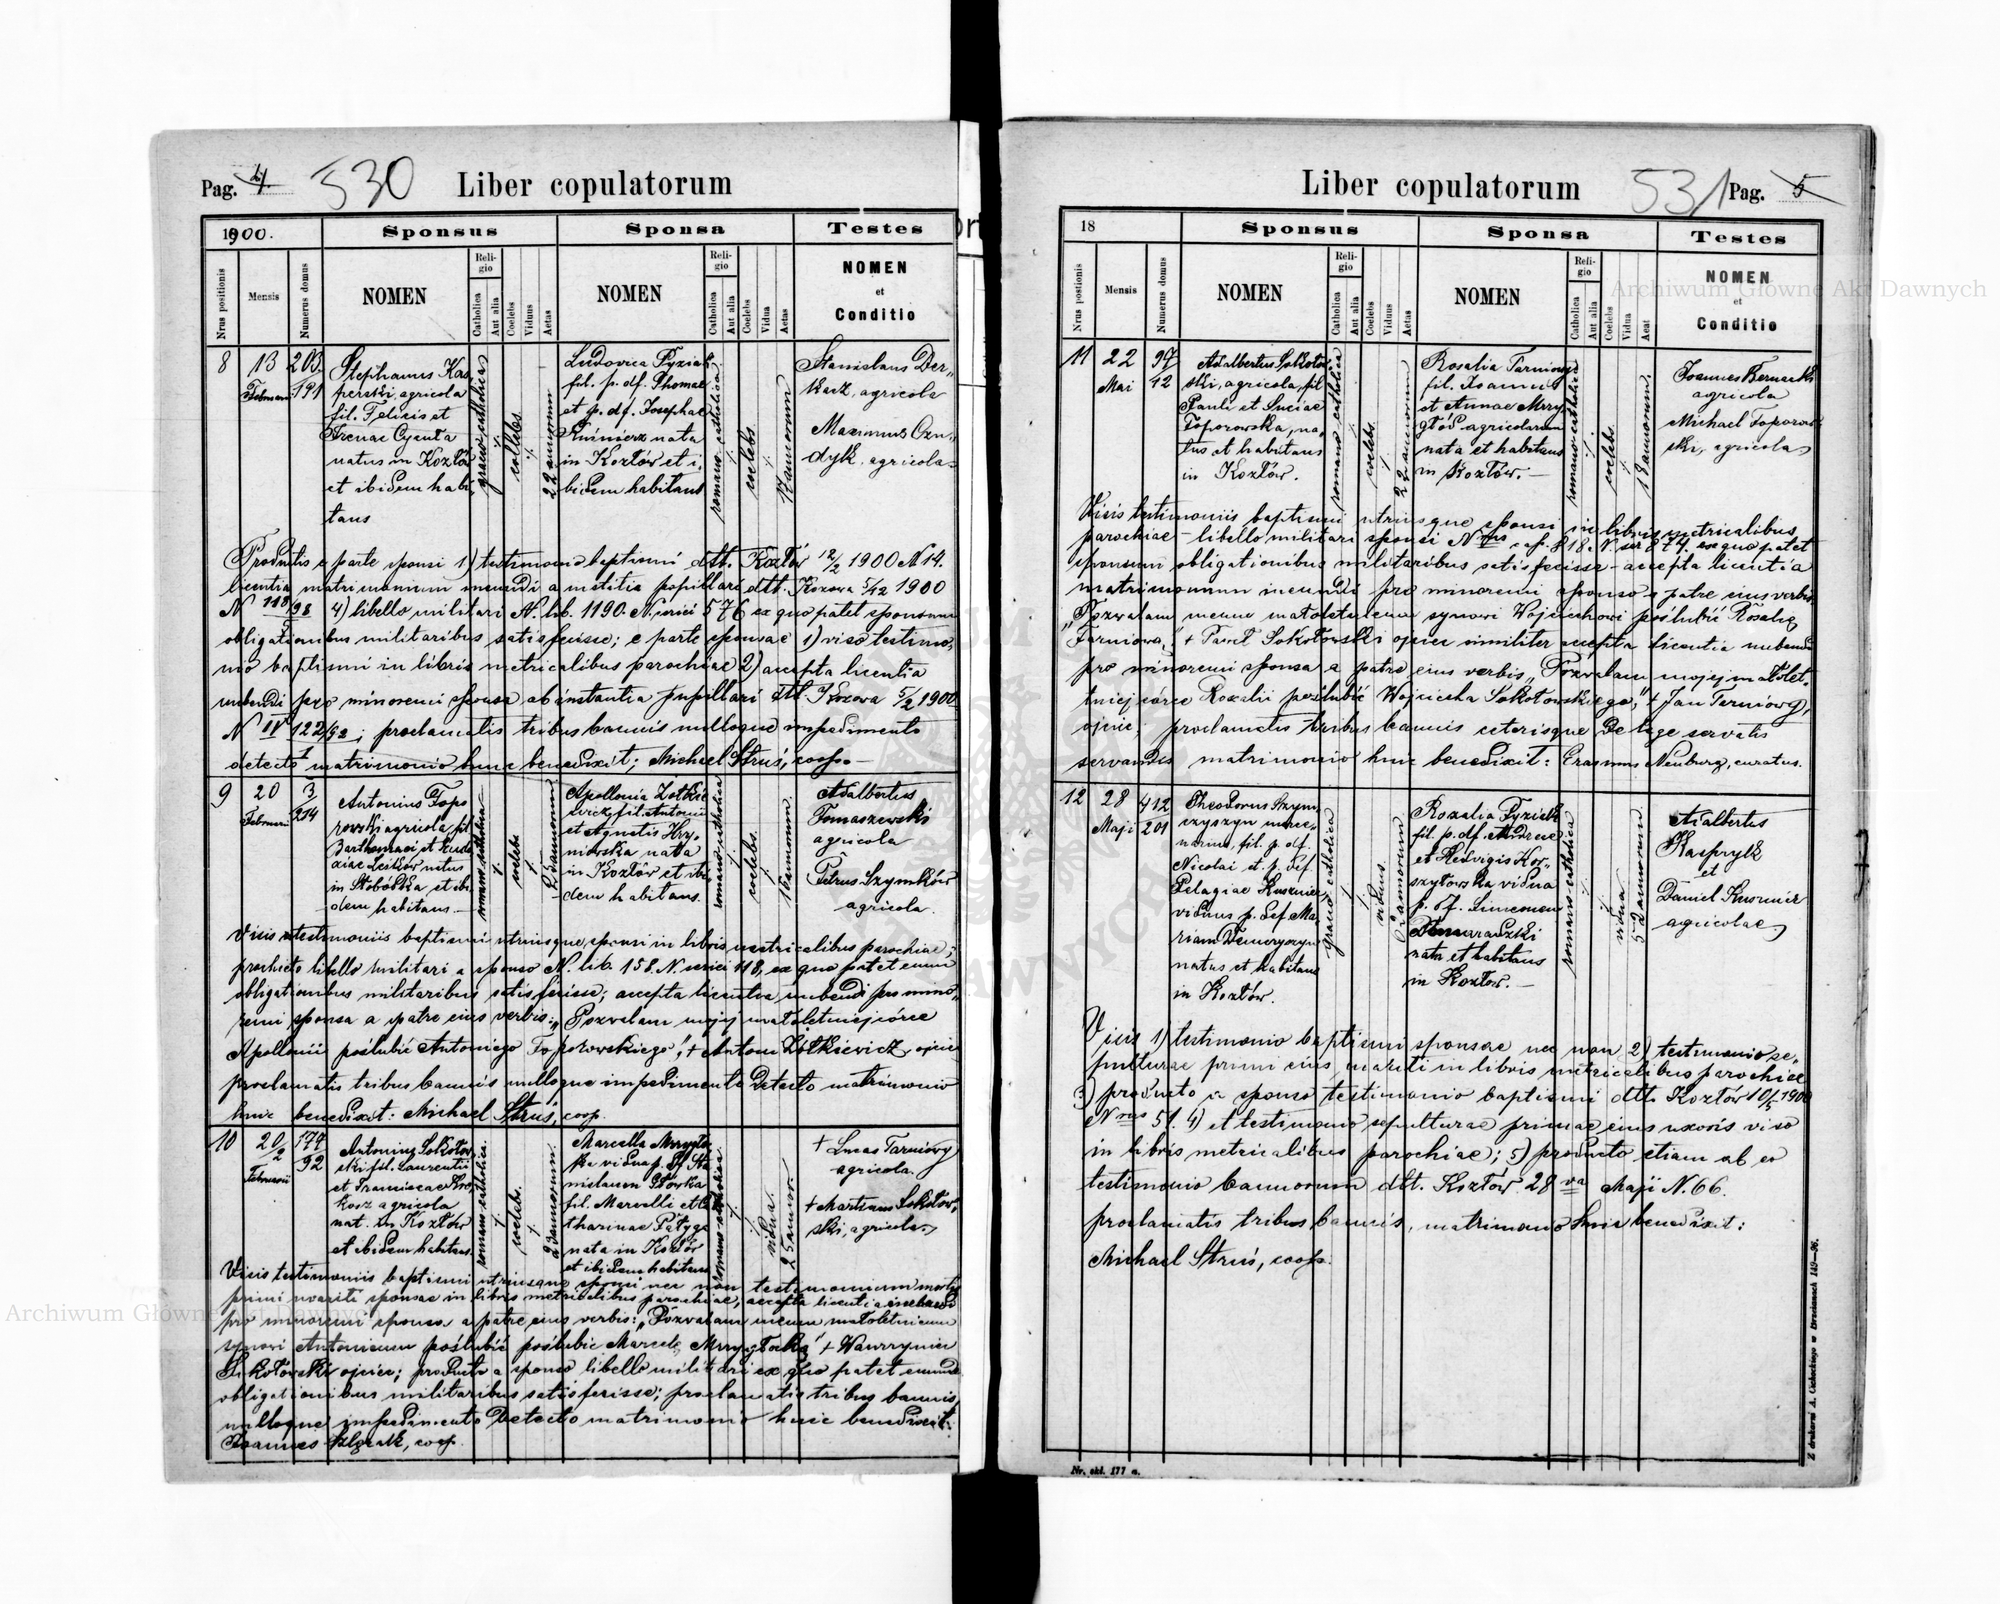 Pag. 4 530 Liber copulatorum
1900. Sponsus Sponsa Testes
Nrus positionis Mensis Numerus domus NOMEN Religio Catholica Aut alia Coelebs Viduus Aetas NOMEN Religio Catholica Aut alia Coelebs Vidua Aetas NOMEN et Conditio
8 13 Februarii 203 191
Stephanus Kas
perski, agricola
fil. Felicis et
Irenae Cyauta
natus in Kozłów
et ibidem habi
tans
graeco catholica
coelebs
22 annorum
Ludovica Fyziak
fil. p. df. Thomae
et p. df. Josephae
Kuśnierz nata
in Kozłów et i,
bidem habitans
romano catholica
coelebs
17 annorum
Stanislaus Der„
kacz, agricola
Maximus Czu„
dyk, agricola
Productis e parte sponsi 1) testimonio baptismi dtt. Kozłów 12/2 1900 N 14.
licentia matrimonium ineundi a instantia pupillari dtt. Kozowa 5/12 1900
N 118/98 4) libello militari N. lib. 1190. N. seriei 576 ex quo patet sponsum
obligationibus militaribus satisfecisse; e parte sponsae 1) viso testimo,
nio baptismi in libris metricalibus parochiae 2) accepta licentia
nubendi pro minorenni sponsa ab instantia pupillari dtt. Kozowa 5/2 1900
N IV 122/92; proclamatis tribus bannis nulloque impedimento
detecto matrimonio huic benedixit; Michael Struś, coop.
9 20 Februarii 3 214
Antonius Topo
rowski agricola, fil
Bartholomaei et
Leśków natus
in Słobódka et ibi
dem habitans
romano catholica
coelebs
annorum
Apollonia Żołkie
wicz, fil. Antonii
et Agnetis Hry„
niowska nata
in Kozłów et ibi
dem habitans.
romano catholica
coelebs.
annorum.
Adalbertus
Tomaszewski
agricola
Petrus Szymków
agricola.
Visis testimoniis baptismi utriusque sponsi in libris metricalibus parochiae;
producto libello militari a sponso N. lib. 158. N. seriei 118, ex quo patet eum
obligationibus militaribus satisfecisse; accepta licentia nubendi pro mino„
renni sponsa a patre eius verbis: „Pozwalam mojej małoletniej córce
Apollonii poślubić Antoniego Toporowskiego", + Antoni Żółkiewicz, ojciec
proclamatis tribus bannis nulloque impedimento detecto matrimonio
huic benedixit: Michael Struś, coop.
10 20/2 Februarii 177 92
Antonius Sokołow
ski fil. Laurentii
et Franciscae
agricola
nat. in Kozłów
et ibidem habitans.
romano catholica
coelebs.
annorum.
Marcella Mrygło
cka vidua p. df. Sta
nislaum Główka
fil. Marcelli et Ca
tharinae Patyga
nata in Kozłów
et ibidem habitans
romano catholica
vidua.
25 annor.
+ Lucas Tarniowy
agricola.
+ Martinus Sokołow,
ski, agricola
Visis testimoniis baptismi utriusque sponsi nec non testimonium mortis
primi mariti sponsae in libris metricalibus parochiae, accepta licentia
pro minorenni sponso a patre eius verbis: „Pozwalam memu małoletniemu
synowi Antoniemu poślubić poślubić Marcelę + Wawrzyniec
Sokołowski ojciec; producto a sponso libello militari ex quo patet eumde
obligationibus militaribus satisfecisse; proclamatis tribus bannis,
nulloque impedimento detecto matrimonio huic benedixit:
Joannes coop.
Liber copulatorum 531 Pag. 5
18 Sponsus Sponsa Testes
Nrus postionis Mensis Numerus domus NOMEN Religio Catholica Aut alia Coelebs Viduus Aetas NOMEN Religio Catholica Aut alia Coelebs Vidua Aeat NOMEN et Conditio
11 22 Mai 97 12
Adalbertus Sokołow
ski, agricola, fil
Pauli et Luciae
Toporowska, na„
tus et habitans
in Kozłów.
romano catholica
coelebs.
22 annorum
Rosalia Tarniowy
fil. Joannis
et Annae Mry
głód agricolarum
nata et habitans
in Kozłów.
romano catholica
coelebs.
18 annorum
Joannes Bernacki
agricola
Michael Toporow
ski, agricola
Visis testimoniis baptismi utriusque sponsi in libris metricalibus
parochiae – libello militari sponsi Nrus cap. 818. N. ser 874. ex quo patet
sponsum obligationibus militaribus satisfecisse – accepta licentia
matrimonium ineundi pro minorenni sponso a patre eius verbis
„Pozwalam memu małoletniemu synowi Wojciechowi poślubić Rosalię
Tarniową", + Paweł Sokołowski ojciec similiter accepta licentia nubendi
pro minorenni sponsa a patre eius verbis „Pozwalam mojej małolet„
tniej córce Rozalii poślubić Wojciecha Sokołowskiego," + Jan Terniowy,
ojciec, proclamatis tribus bannis ceterisque de lege servatis
servandis matrimonio huic benedixit: Erasmus Neuburg, curatus.
12 28 Maji 412 201
Theodorus Szym
czyszyn merce„
narius, fil. p. df.
Nicolai et p. def.
Pelagiae Kuszmier
viduus p. def. Ma
riam
natus et habitans
in Kozłów.
graeco catholica
viduus.
annorum
Rozalia Fyziak
fil. p. df. Andreae
et Hedvigis Kor„
szyłowska vidua
p. df. Simeonem
nata et habitans
in Kozłów. –
romano catholica
vidua
52 annorum
Adalbertus
Kaspryk
et
Daniel Kuśmier
agricolae
Visis 1) testimonio baptismi sponsae nec non 2) testimonio se„
pulturae primi eius mariti in libris metricalibus parochiae
3) producto a sponso testimonio baptismi dtt. Kozłów 10/5 1900
Nrus 51. 4) et testimonio sepulturae primae eius uxoris viso
in libris metricalibus parochiae; 5) producto etiam ab eo
testimonio bannorum dtt. Kozłów 28 va Maji N. 66.
proclamatis tribus bannis, matrimonio huic benedixit:
Michael Struś, coop.
Nr. skl. 177 a.
Z drukarni A. Cichockiego w Brzeżanach 149—96.
Archiwum Główne Akt Dawnych
Archiwum Główne Akt Dawnych